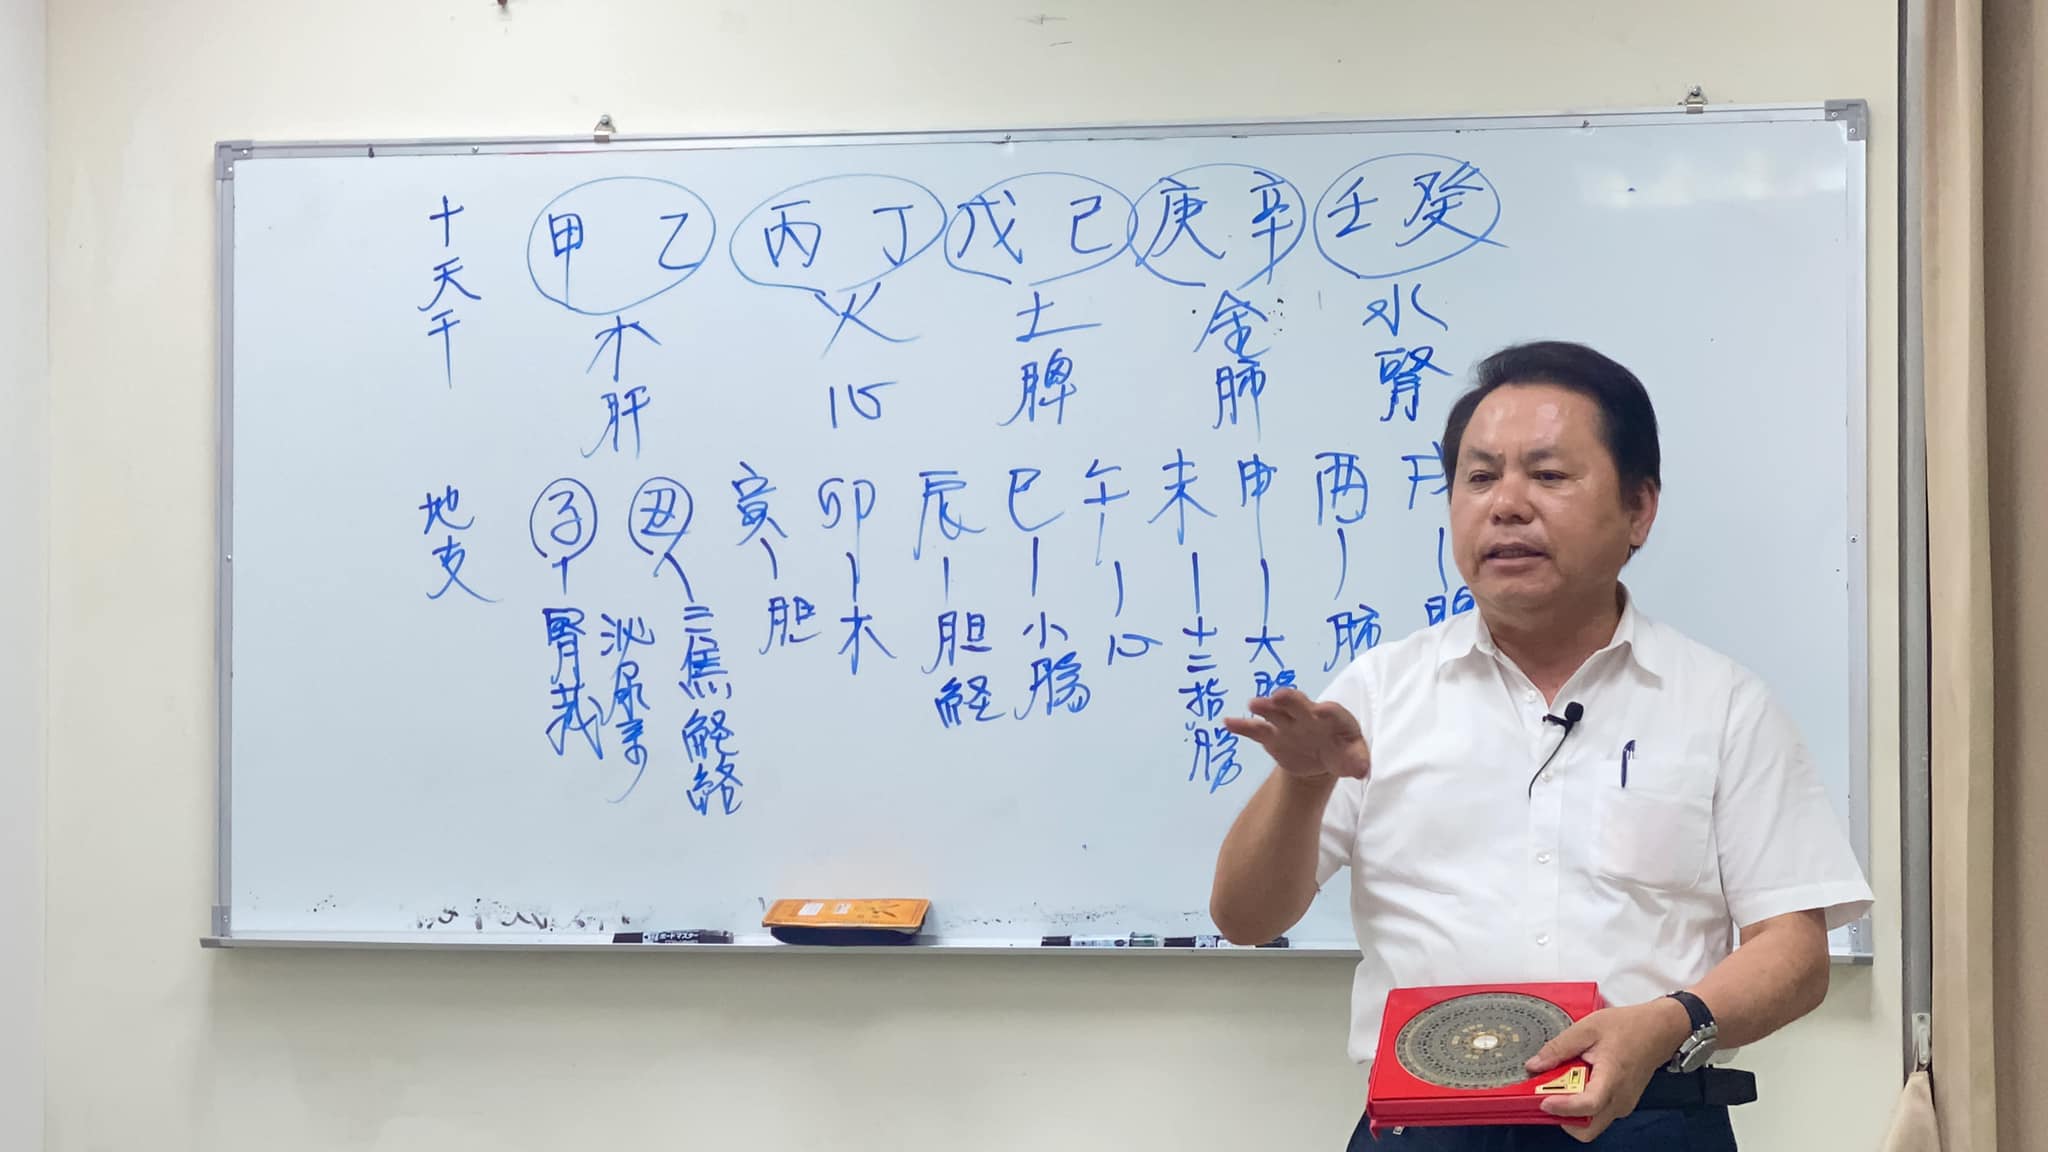 十天干
甲 乙 丙 丁 戊 己 庚 辛 壬 癸
木 火 土 金 水
肝 心 脾 肺 腎
地支
子 丑 寅 卯 辰 巳 午 未 申 酉 戌
腎
泌尿
三焦
經絡
胆
木
胆經
小腸
心
十二指腸
大腸
肺
ボードマスター